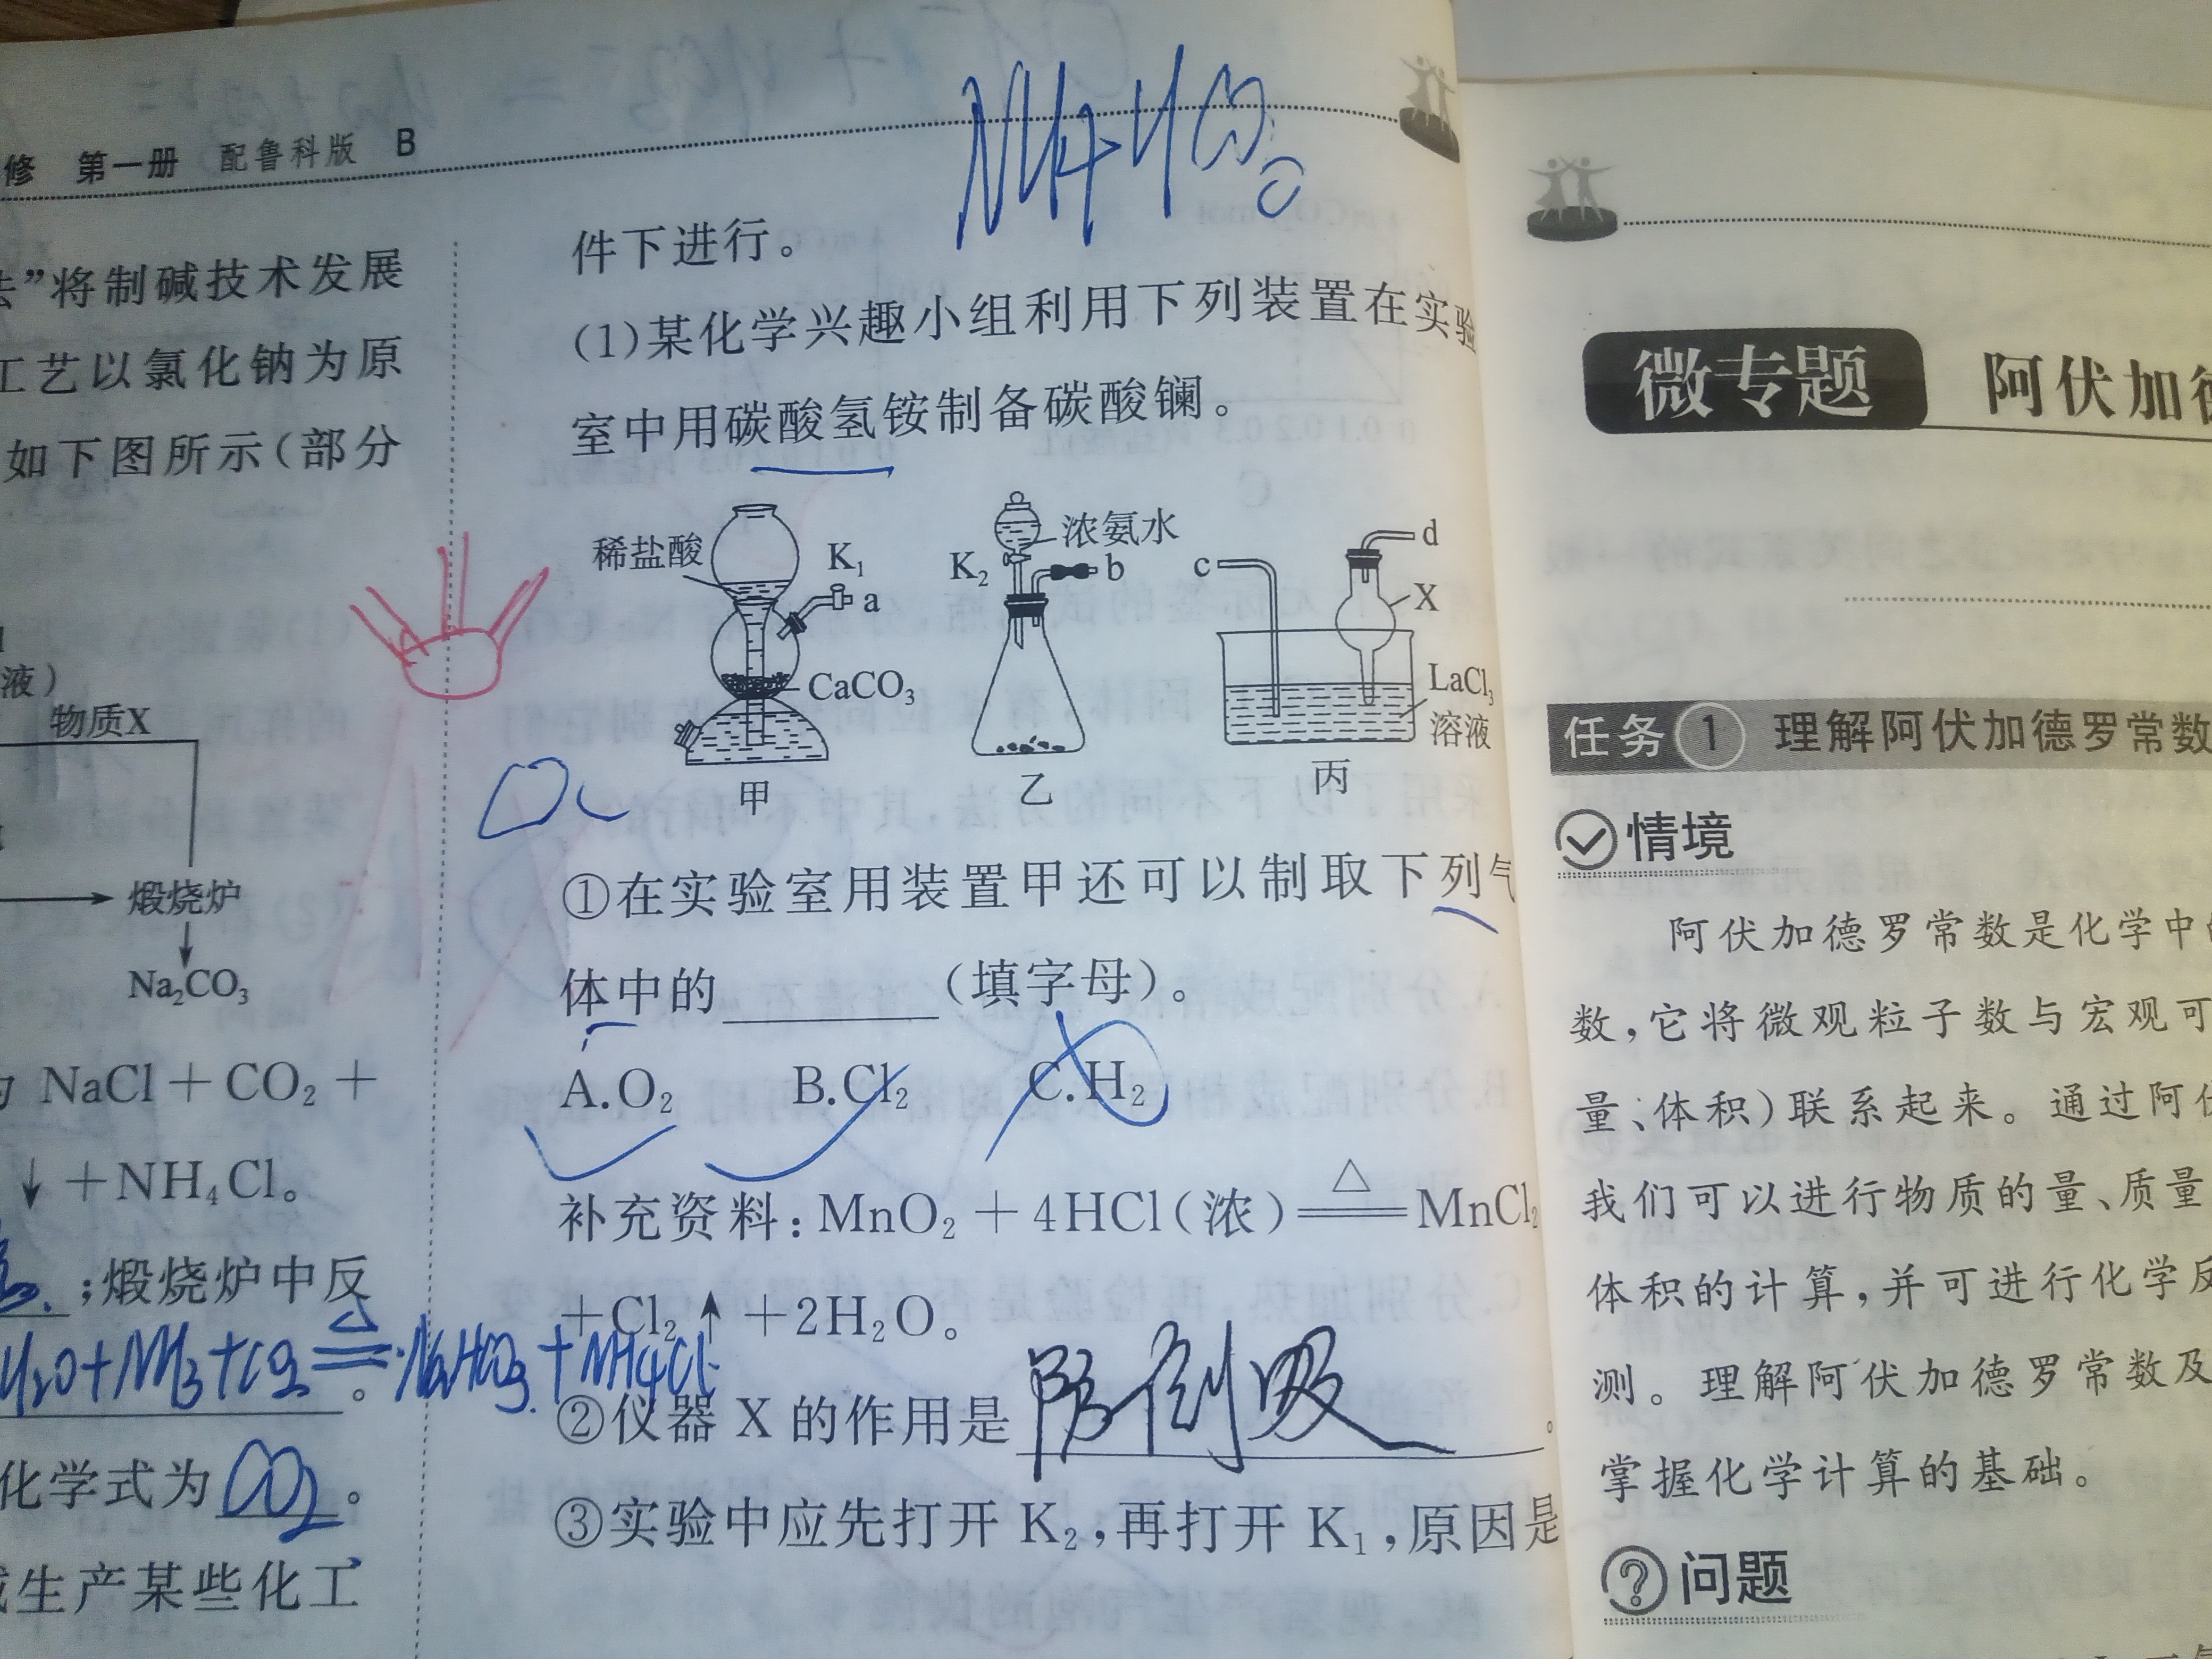 修 第一册 配鲁科版 B
法”将制碱技术发展
工艺以氯化钠为原
如下图所示(部分
液)
物质X
煅烧炉
Na₂CO₃
NaCl+CO₂+
↓+NH₄Cl。
;煅烧炉中反
H₂O+NH₃+CO₂ △ NaHCO₃+NH₄Cl
。
化学式为CO₂。
生产某些化工
NH₄HCO₃
件下进行。
(1)某化学兴趣小组利用下列装置在实验
室中用碳酸氢铵制备碳酸镧。
稀盐酸
K₁
a
CaCO₃
甲
浓氨水
K₂
b
乙
c
d
X
LaCl₃
溶液
丙
①在实验室用装置甲还可以制取下列气
体中的________(填字母)。
A.O₂ B.Cl₂ C.H₂
补充资料:MnO₂+4HCl(浓)≜MnCl₂
+Cl₂↑+2H₂O。
②仪器X的作用是防倒吸。
③实验中应先打开K₂,再打开K₁,原因是
微专题 阿伏加德
任务1 理解阿伏加德罗常数
情境
阿伏加德罗常数是化学中
数,它将微观粒子数与宏观可
量、体积)联系起来。通过阿伏
我们可以进行物质的量、质量
体积的计算,并可进行化学反
测。理解阿伏加德罗常数及
掌握化学计算的基础。
问题